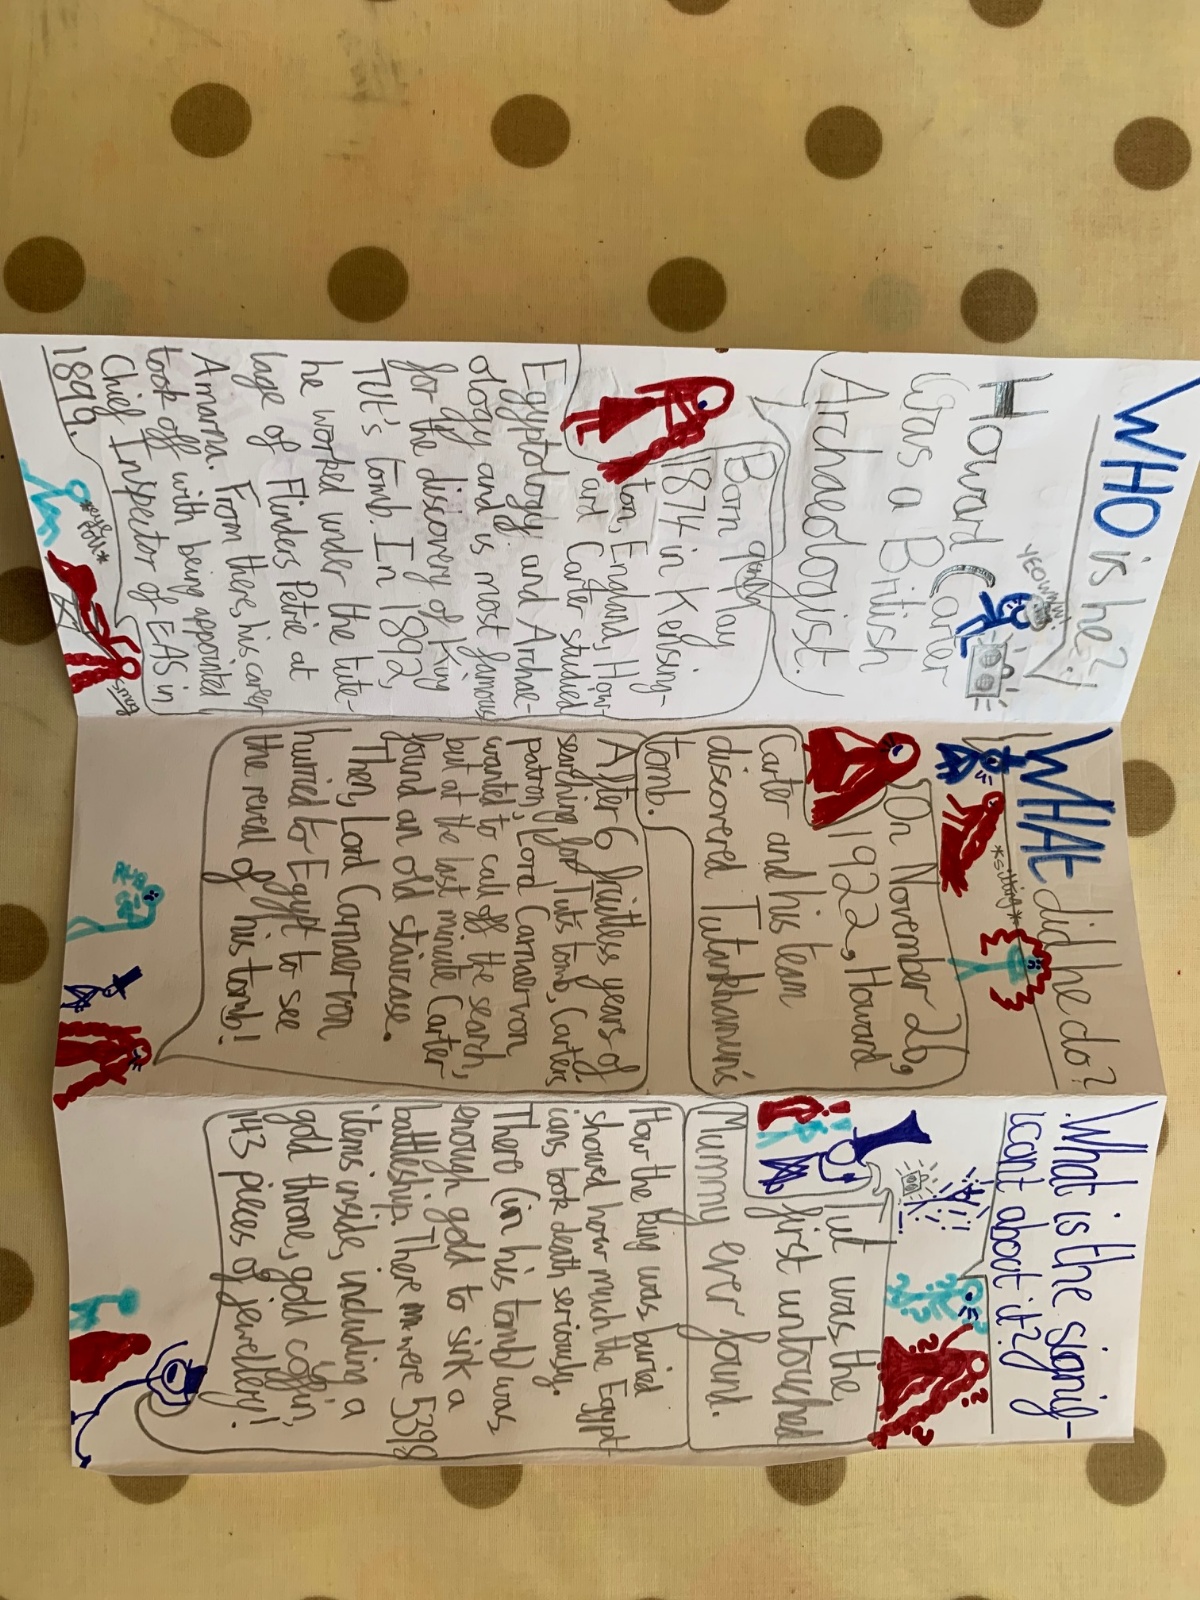 WHO is he?
YEOWWW!
Howard Carter
was a British
Archaeologist.
Born 9 May
1874 in Kensing-
ton, England, How-
ard Carter studied
Egyptology and Archae-
ology and is most famous
for the discovery of King
Tut's tomb. In 1892,
he worked under the tute-
lage of Flinders Petrie at
Amarna. From there, his career
took off with being appointed
Chief Inspector of EAS in
1899.
WHAt did he do?
*sitting*
On November 26,
1922, Howard
Carter and his team
discovered Tutankhamun's
tomb.
After 6 fruitless years of
searching for Tut's tomb, Carter's
patron, Lord Carnaervon
wanted to call off the search,
but at the last minute Carter
found an old staircase.
Then, Lord Carnaervon
hurried to Egypt to see
the reveal of his tomb!
What is the signif-
icant about it?
Tut was the
first untouched
Mummy ever found.
How the King was buried
showed how much the Egypt-
ians took death seriously.
There (in his tomb) was
enough gold to sink a
battleship. There were 5398
items inside, including a
gold throne, gold coffin,
143 pieces of jewellery!